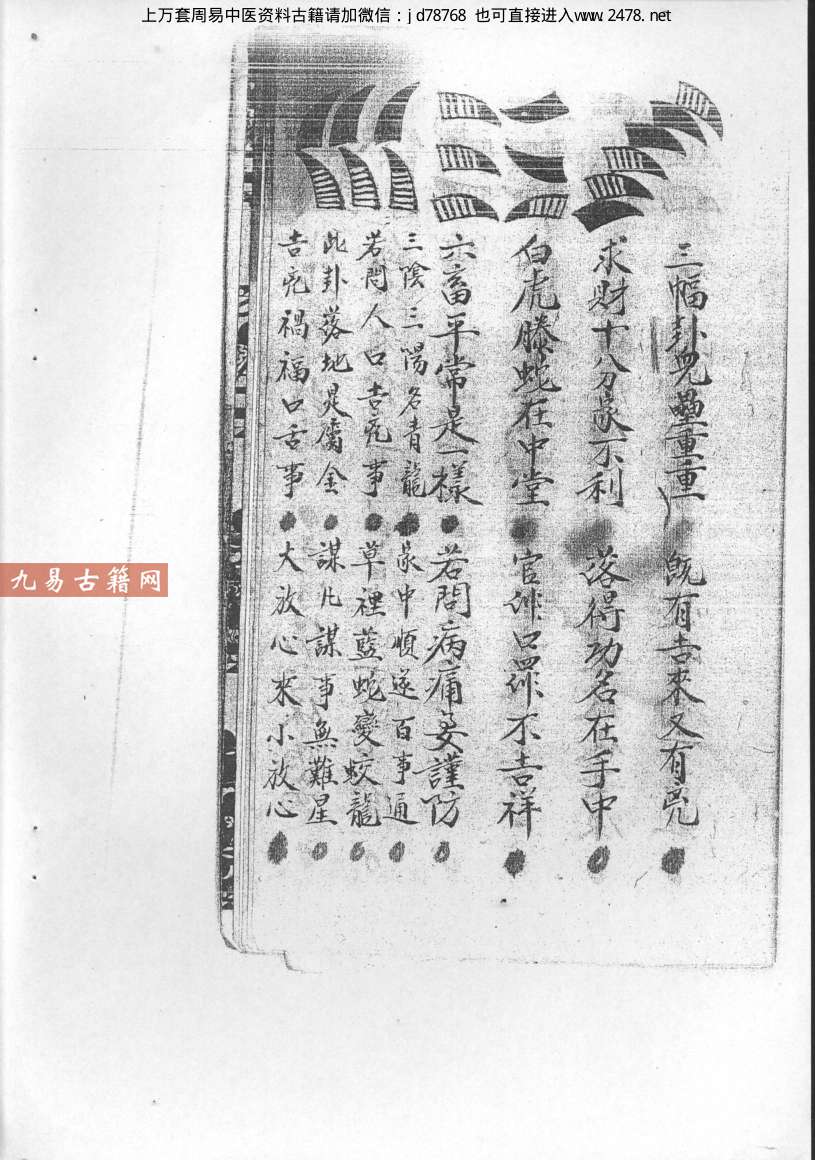 上万套周易中医资料古籍请加微信：jd78768 也可直接进入www.2478.net
三幅卦兜壘重重 既有吉來又有兇
求財十八分家不利 落得功名在手中
白虎螣蛇在中堂 官非口非不吉祥
六畜平常是一樣 若問病痛要謹防
三陰三陽名青龍 家中順遂百事通
若問人口吉兇事 草裡藍蛇變蛟龍
此卦落地是屬金 謀凡謀事無難星
吉兇禍福口舌事 大放心來小放心
九易古籍网